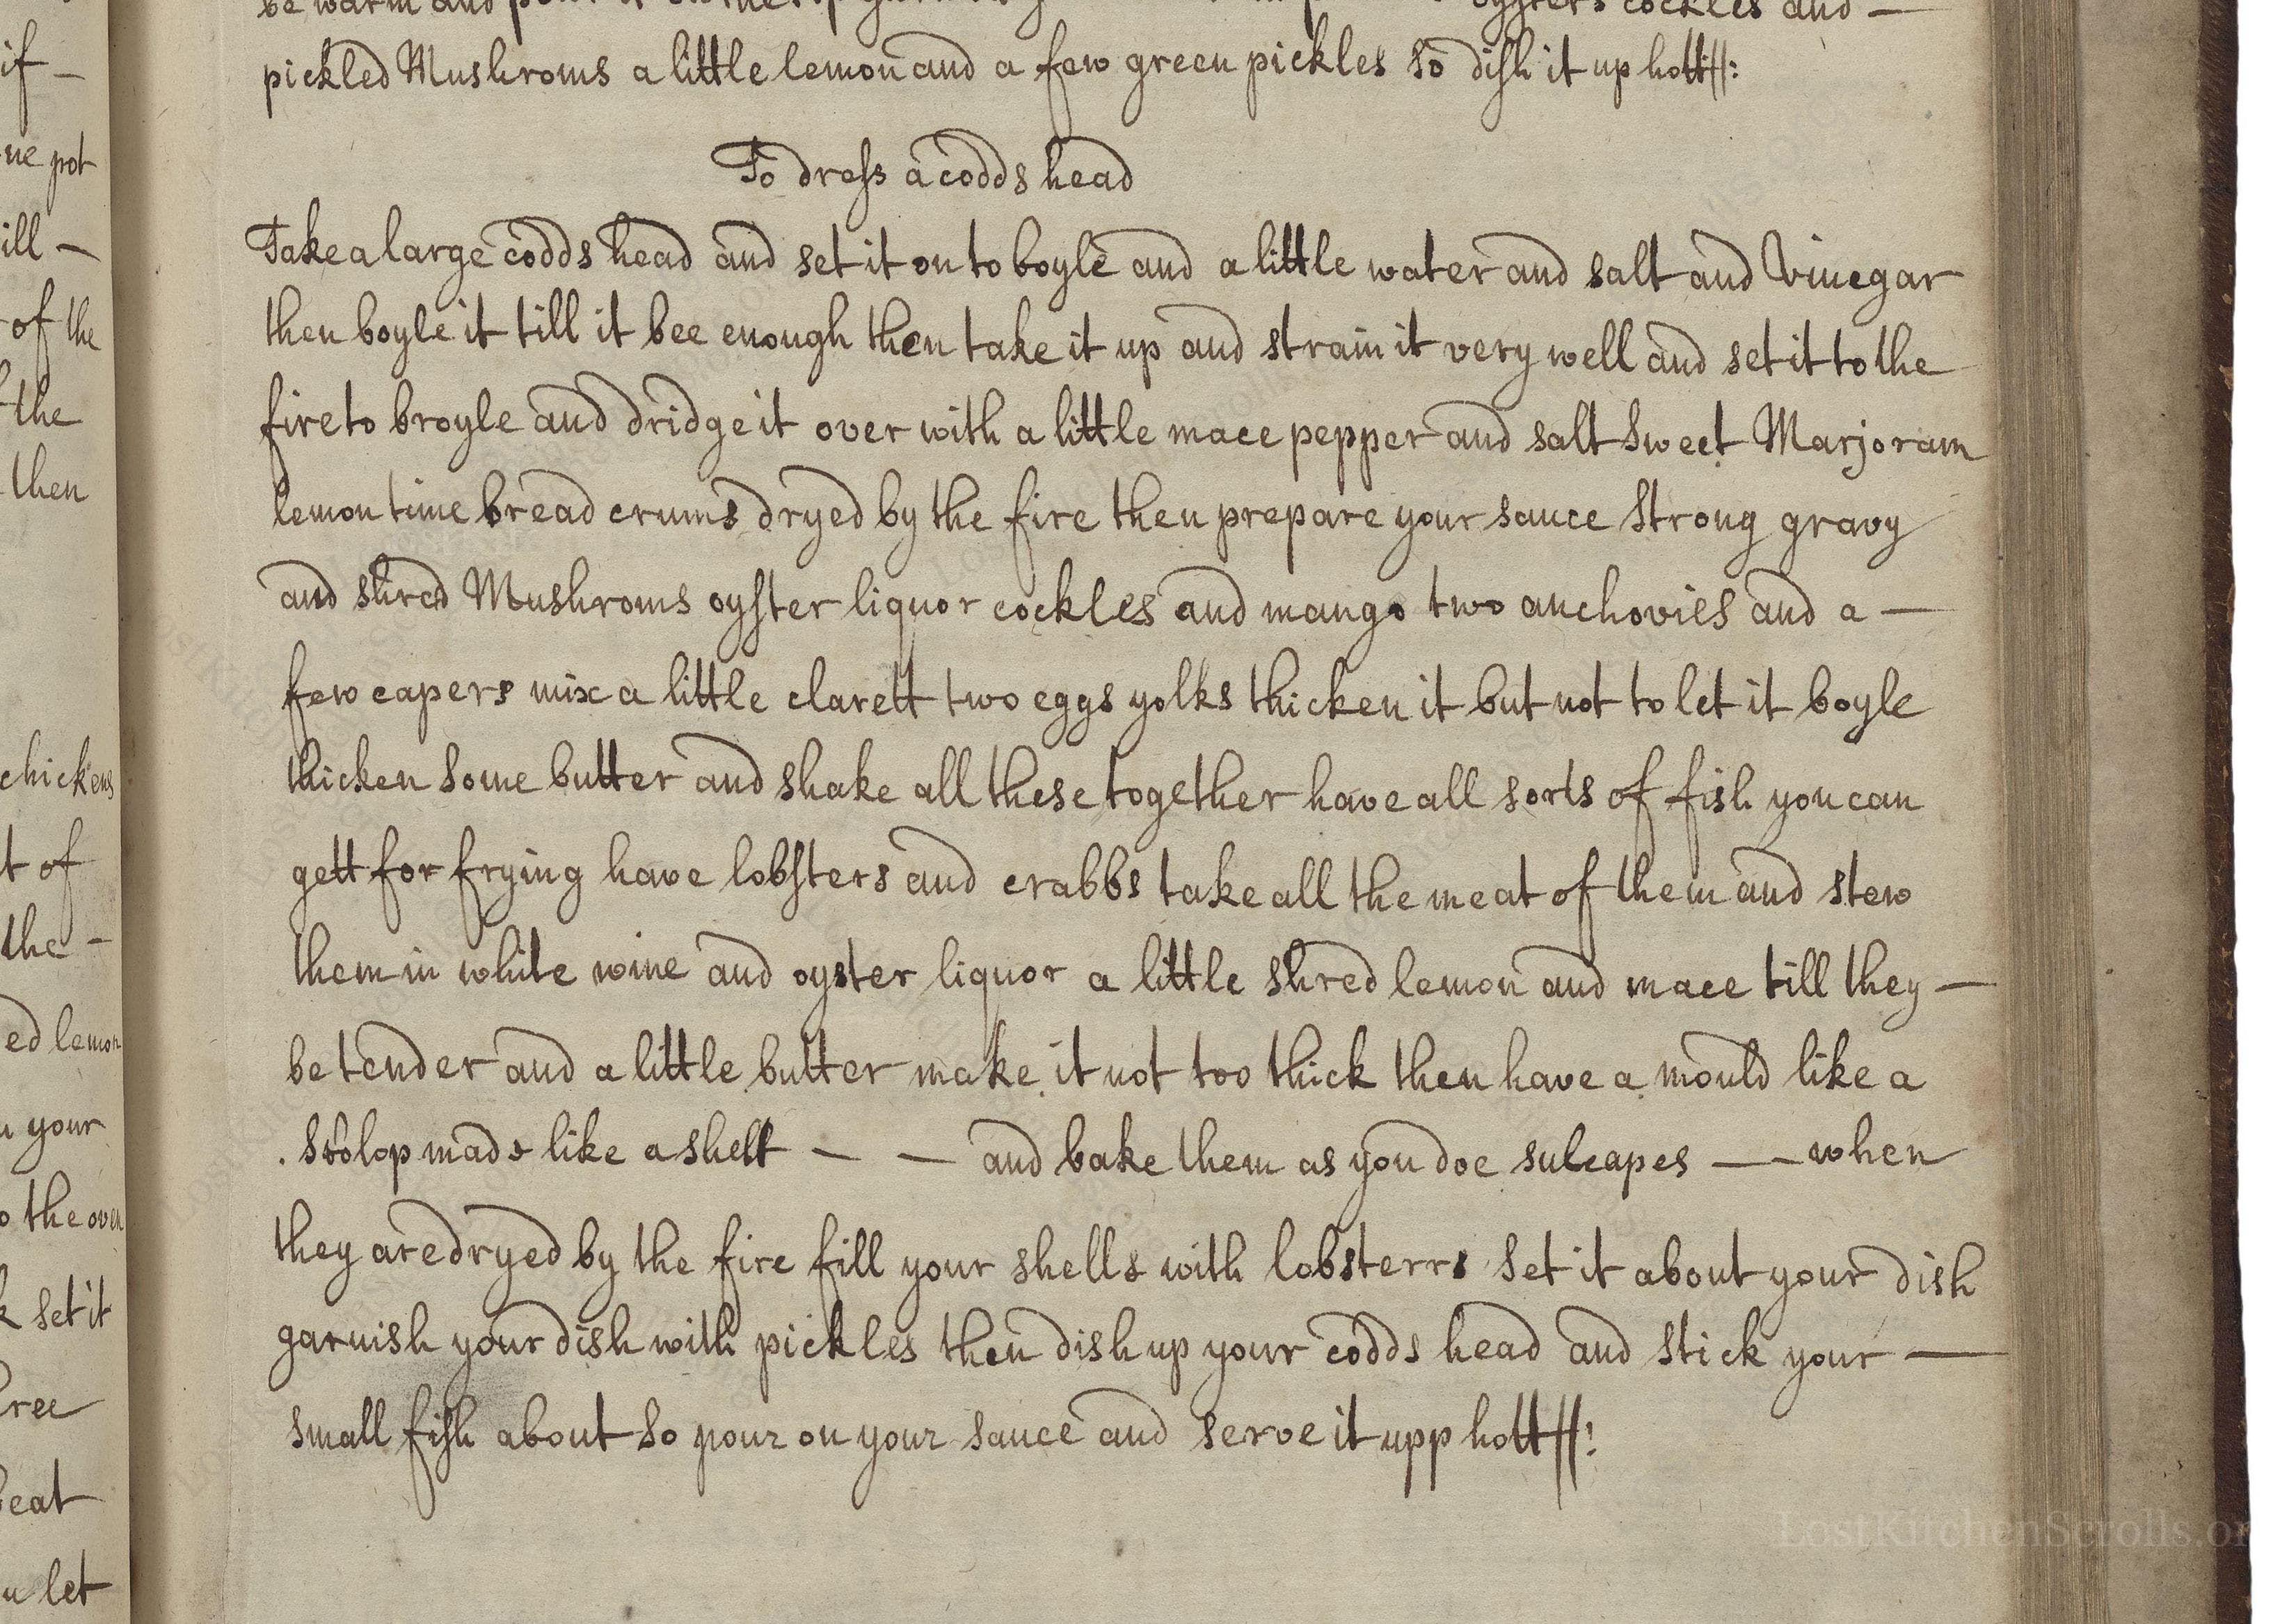 be warm and
oysters cockles and —
pickled Mushroms a little lemon and a few green pickles so dish it up hott//:
To dress a codds head
Take a large codds head and set it on to boyle and a little water and salt and Vinegar
then boyle it till it bee enough then take it up and strain it very well and set it to the
fire to broyle and dridge it over with a little mace pepper and salt sweet Marjoram
lemon time bread crums dryed by the fire then prepare your sauce strong gravy
and shred Mushroms oyster liquor cockles and mango two anchovies and a —
few capers mix a little clarett two eggs yolks thicken it but not to let it boyle
thicken some butter and shake all these together have all sorts of fish you can
gett for frying have lobsters and crabbs take all the meat of them and stew
them in white wine and oyster liquor a little shred lemon and mace till they —
be tender and a little butter make it not too thick then have a mould like a
made like a shell — — and bake them as you doe — — when
they are dryed by the fire fill your shells with lobsterrs set it about your dish
garnish your dish with pickles then dish up your codds head and stick your —
small fish about so pour on your sauce and serve it upp hott//:
if —
pot
ill —
of the
the
then
chickens
t of
the —
ed lemon
your
the oven
set it
eat
let
LostKitchenScrolls.or